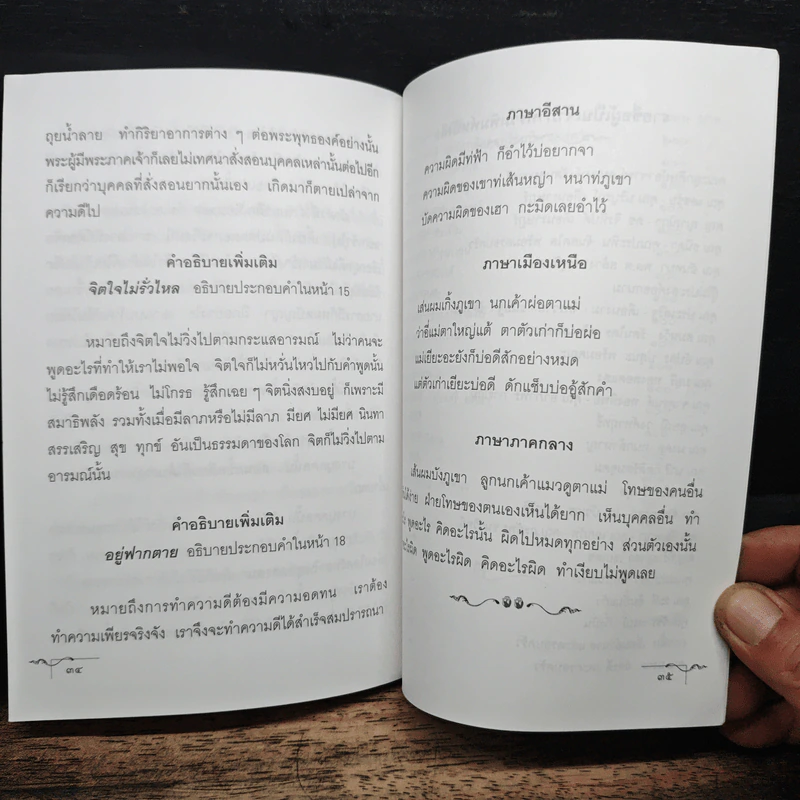 ถุยน้ำลาย ทำกิริยาอาการต่าง ๆ ต่อพระพุทธองค์อย่างนั้น
พระผู้มีพระภาคเจ้าก็เลยไม่เทศนาสั่งสอนบุคคลเหล่านั้นต่อไปอีก
ก็เรียกว่าบุคคลที่สั่งสอนยากนั้นเอง เกิดมาก็ตายเปล่าจาก
ความดีไป
คำอธิบายเพิ่มเติม
จิตใจไม่รั่วไหล อธิบายประกอบคำในหน้า 15
หมายถึงจิตใจไม่วิ่งไปตามกระแสอารมณ์ ไม่ว่าคนจะ
พูดอะไรที่ทำให้เราไม่พอใจ จิตใจก็ไม่หวั่นไหวไปกับคำพูดนั้น
ไม่รู้สึกเดือดร้อน ไม่โกรธ รู้สึกเฉย ๆ จิตนิ่งสงบอยู่ ก็เพราะมี
สมาธิพลัง รวมทั้งเมื่อมีลาภหรือไม่มีลาภ มียศ ไม่มียศ นินทา
สรรเสริญ สุข ทุกข์ อันเป็นธรรมดาของโลก จิตก็ไม่วิ่งไปตาม
อารมณ์นั้น
คำอธิบายเพิ่มเติม
อยู่ฟากตาย อธิบายประกอบคำในหน้า 18
หมายถึงการทำความดีต้องมีความอดทน เราต้อง
ทำความเพียรจริงจัง เราจึงจะทำความดีได้สำเร็จสมปรารถนา
๓๔
ภาษาอีสาน
ความผิดมีท่ฟ้า ก็อำไว้บ่อยากจา
ความผิดของเขาท่เส้นหญ้า หนาท่ภูเขา
บัดความผิดของเฮา กะมิดเลยอำไว้
ภาษาเมืองเหนือ
เส้นผมเกิ้งภูเขา นกเค้าผ่อตาแม่
ว่าอี่แม่ตาใหญ่แต้ ตาตัวเก่าก็บ่อผ่อ
แม่เยียะอะยังก็บ่อดีสักอย่างหมด
แต่ตัวเก่าเยียะบ่อดี ดักแซ็บบ่ออู้สักคำ
ภาษาภาคกลาง
เส้นผมบังภูเขา ลูกนกเค้าแมวดูตาแม่ โทษของคนอื่น
ได้ง่าย ฝ่ายโทษของตนเองเห็นได้ยาก เห็นบุคคลอื่น ทำ
พูดอะไร คิดอะไรนั้น ผิดไปหมดทุกอย่าง ส่วนตัวเองนั้น
พูดอะไรผิด คิดอะไรผิด ทำเงียบไม่พูดเลย
๓๕